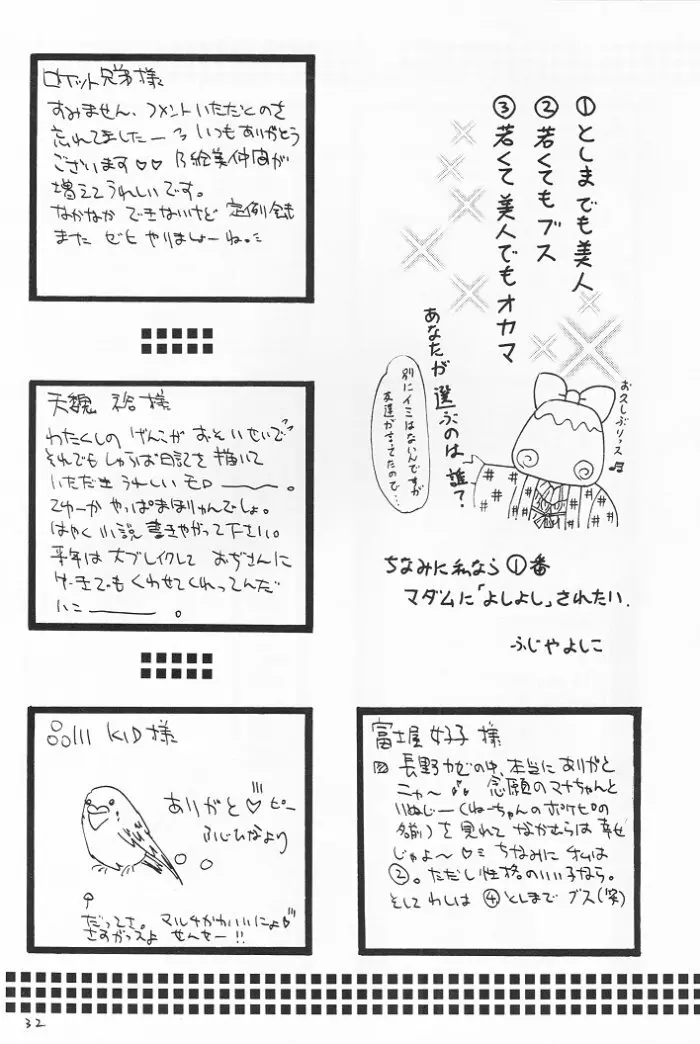 ①としまでも美人
②若くてもブス
③若くて美人でもオカマ
あなたが選ぶのは誰？
別にイミはないんですが
友達が言ってたので…
お久しぶりっス♫
ちなみに私なら①番
マダムに「よしよし」されたい.
ふじやよしこ
ロケット兄弟様
すみません、コメントいただくのを
忘れてましたー いつもありがとう
ございます♡♡ 絵美仲間が
増えてうれしいです。
なかなか できないけど 定例
また ゼヒ やりましょーね。
天魏 裕様
わたくしの げんこが おそいせいで
それでも しゅらば日記を描いて
いただき うれしい モロ———。
てゆーか やっぱ まほりゅんでしょ。
はやく 小説 書きやがって下さい。
来年は 大ブレイクして おぢさんに
ケーキでも くわせてくれってんだ
———。
品川 KID 様
ありがと♡ ピー
ふじひなより
だってさ。マルチかわいいにょ♡
さすがっスよ せんせー!!
富士屋好子 様
長野カゼの中、本当に ありがと
ニャ〜 念願のマナちゃんと
いぬじー（ねーちゃんのポケピの
名前）を 見れて なかむらは 幸せ
じゃよ〜♡ ちなみに オムは
②。ただし性格のいい子なら。
そして わしは ④としまで ブス（笑）
32